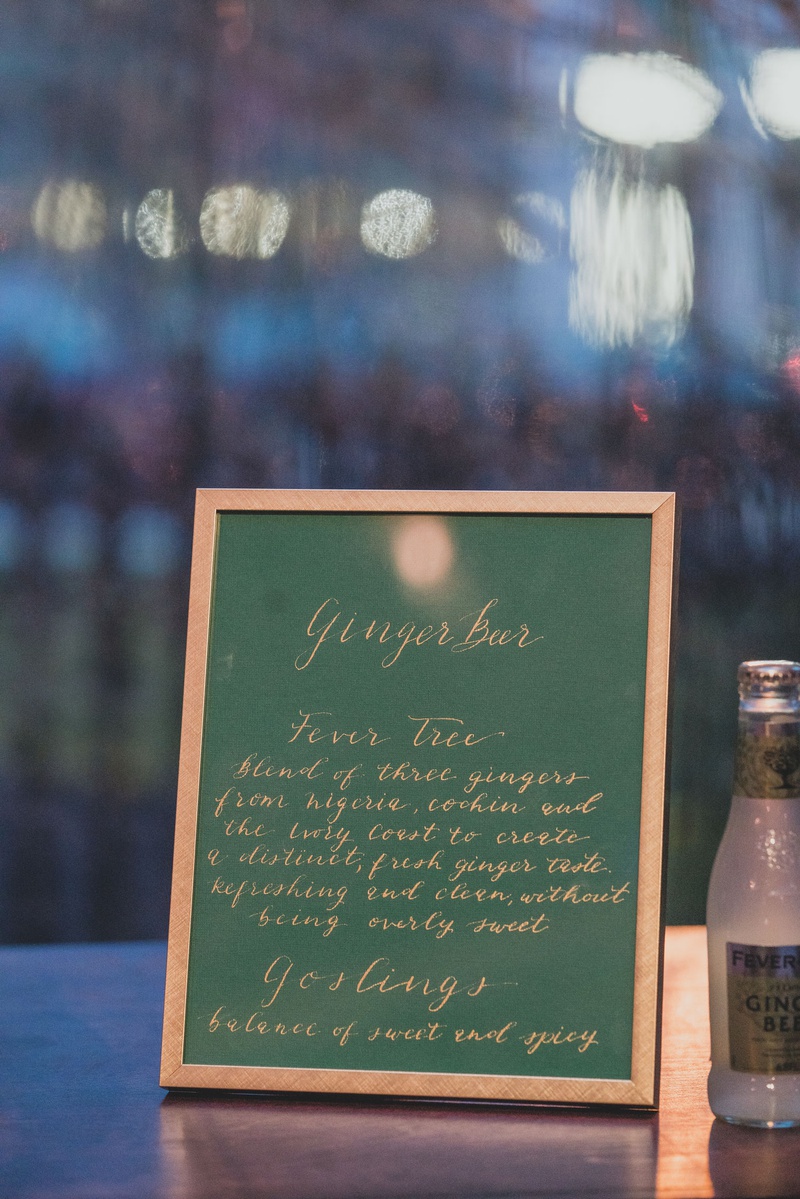 Ginger Beer
Fever Tree
Blend of three gingers
from nigeria, cochin and
the Ivory Coast to create
a distinct, fresh ginger taste.
Refreshing and clean, without
being overly sweet
Goslings
balance of sweet and spicy
FEVER
GING
BEE